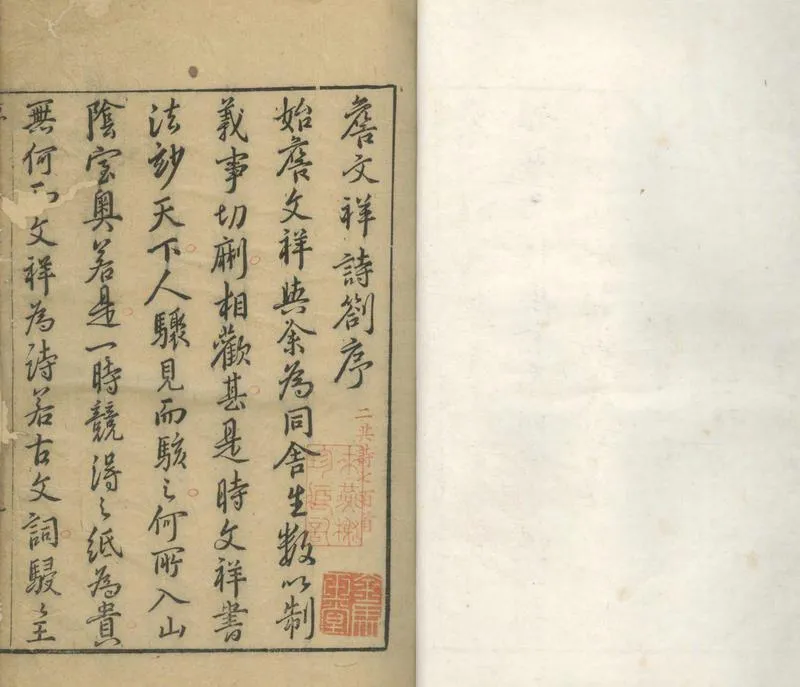 詹文祥詩劄序
二共詩七百首
始詹文祥與余為同舍生數以制
義事切劘相歡甚是時文祥書
法妙天下人驟見而駭之何所入山
陰室奧若是一時競得之紙為貴
無何而文祥為詩若古文詞駸〻至